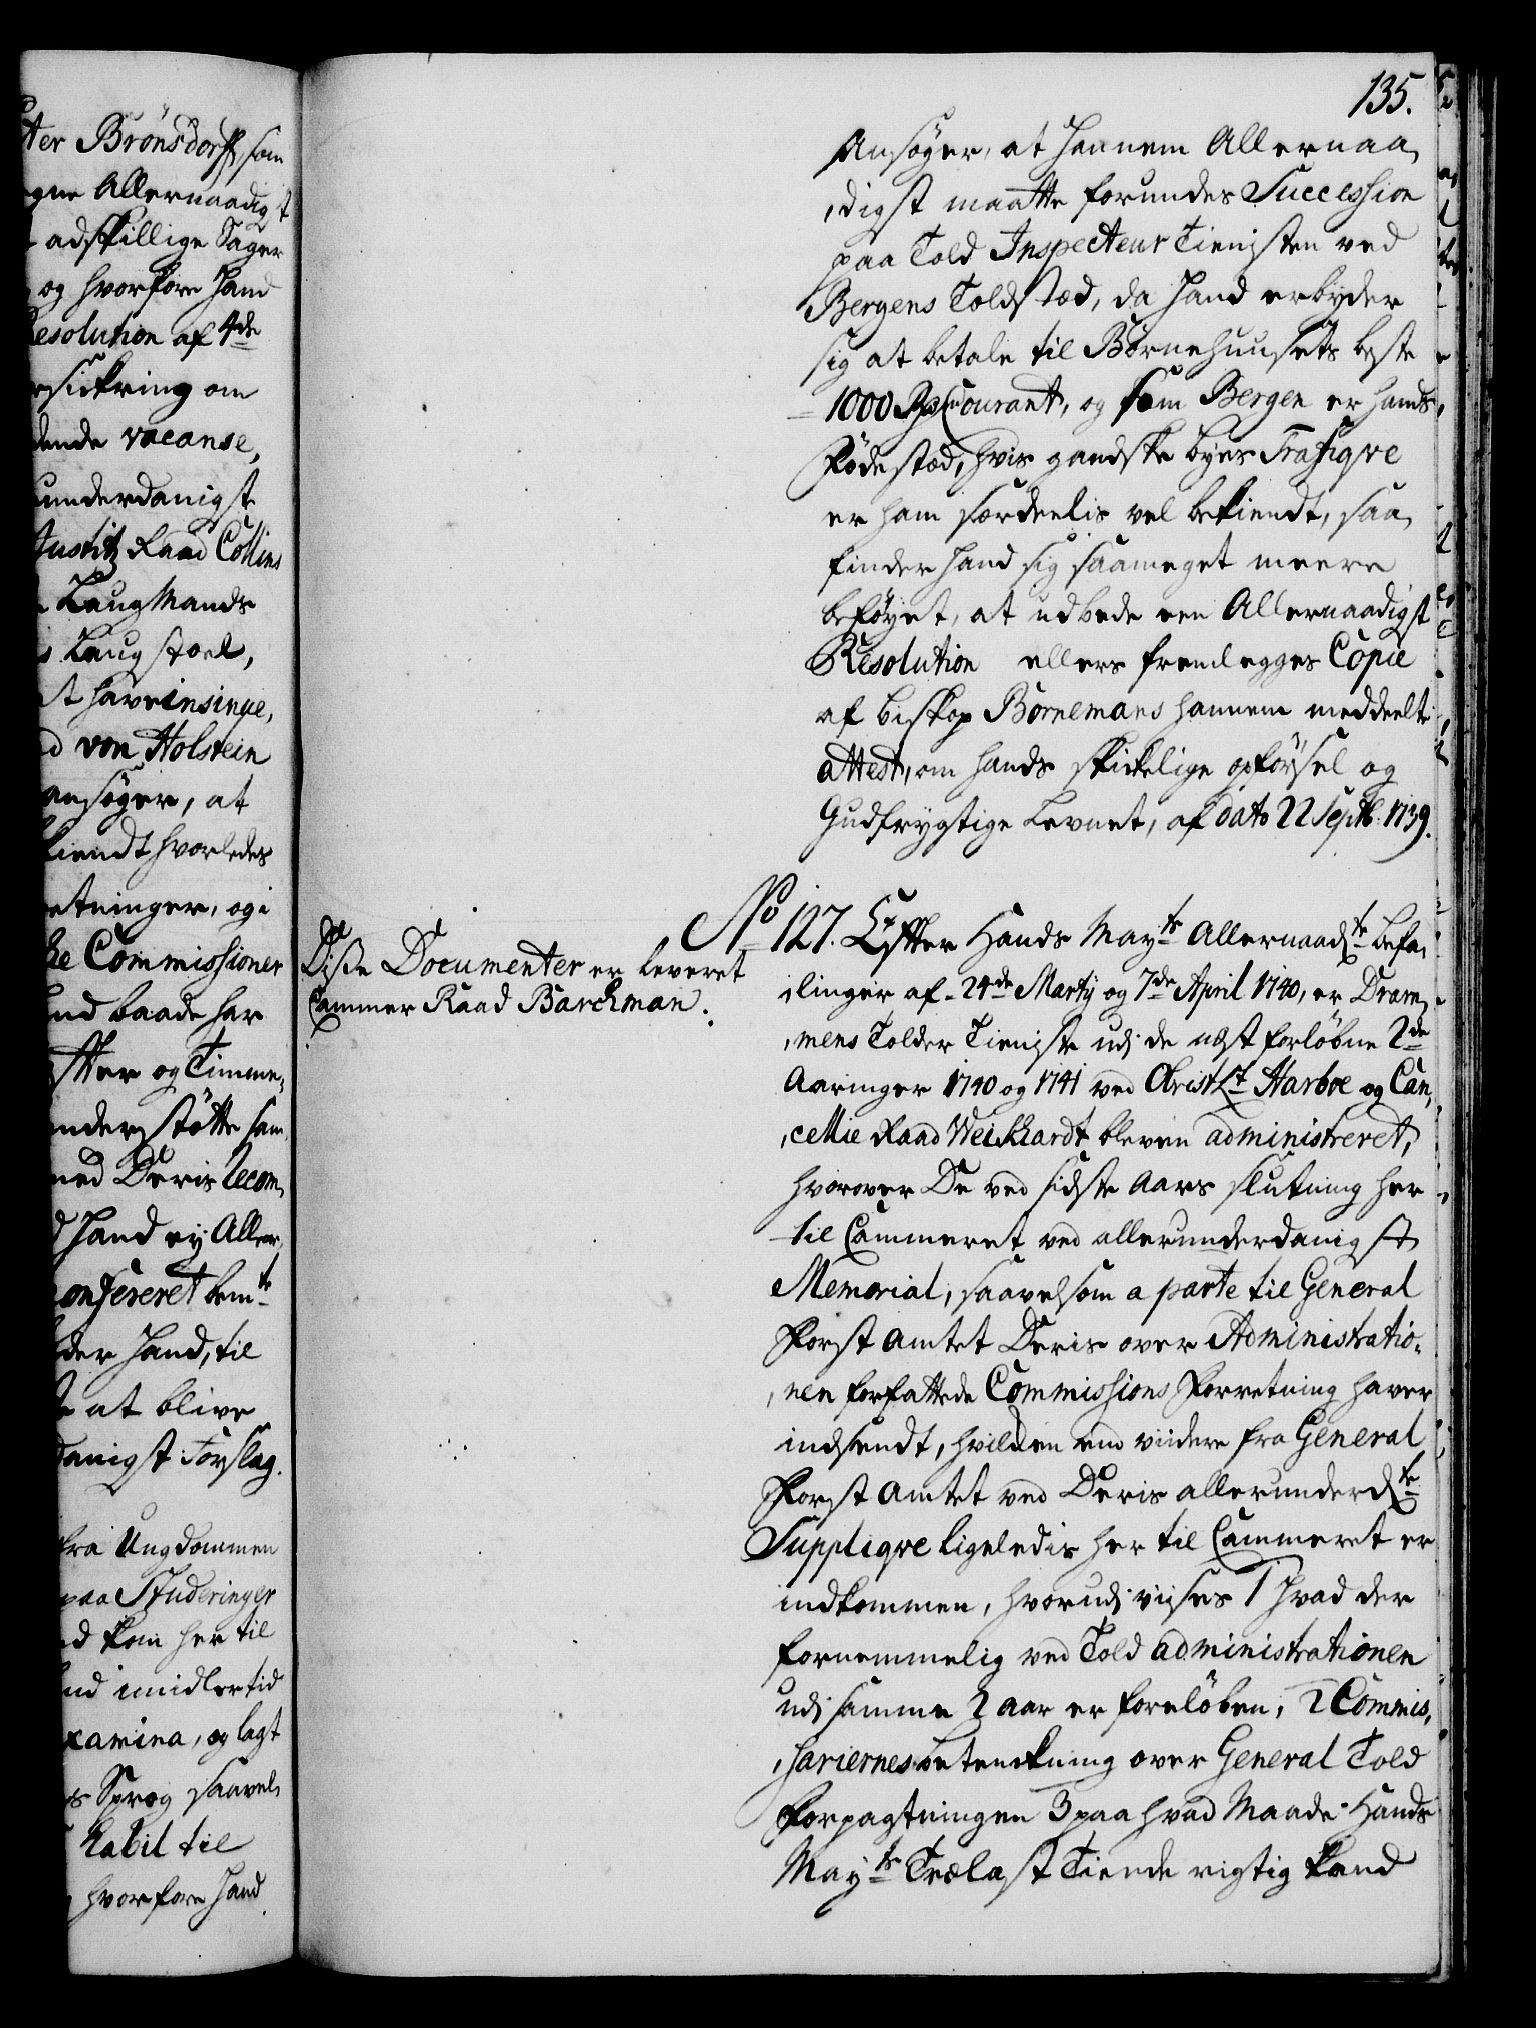 ter Brönsdorff, som
gne Allernaadigst
adskillige Sager
og hvorfore Hand
Resolution af 4de
rsickring om
dende vacanse,
underdanigst
Justitz Raad Collins
Laugmands
Laugstoel,
at have insinue,
d von Holstein
ansøger, at
kiendt hvorledes
retninger, og i
he Commissioner
end baade har
after og Timme,
understøtte sam,
med Deris recom,
d Hand ey Aller,
onfereret bemte
der Hand, til
at blive
danigst Forslag.
fra Ungdommen
paa Studeringer
d kom her til
nd imidlertid
xamina, og lagt
s Sprog saavel
habil til
hvorfore Hand
135.
Ansøger, at Hannem Allernaa,
,digst maatte forundes Succession
paa Told Inspecteur Tienisten ved
Bergens Toldstæd, da Hand erbyder
sig at betale til Børnehuusets beste
1000 Rdr Courant, og som Bergen er hands
Fødestæd, hvis gandske byes Trafiqve
er ham særdeelis vel bekiendt, saa
finder Hand sig saameget meere
beføyet, at udbede een Allernaadigst
Resolution ellers fremlegges Copie
af biskop Børnemans hannem meddeelte
attest, om hands skickelige opførsel og
Gudfrygtige Levnet, af dato 22 Septb. 1739.
No 127. Efter Hands Mayts Allernaadte befa,
,linger af 24de Martij og 7de April 1740, er Dram,
,mens Tolder Tieniste udi de næst forløbne 2de
Aaringer 1740 og 1741 ved Obrist Lt Harboe og Can,
,cellie Raad Weickhardt bleven administreret,
hvorover De ved sidste Aars slutning her
til Cammeret ved allerunderdanigst
Memorial, saavelsom a parte til General
Forst Amtet Deris over Administratio,
,nen forfattede Commissions Forretning haver
indsendt, hvilken end viidere fra General
Forst Amtet ved Deris allerunderdte
Suppliqve ligeledis her til Cammeret er
indkommen, hvorudi viises 1 hvad der
fornemmelig ved Told administrationen
udi samme 2 aar er foreløben, 2 Commis,
,sariernes betenckning over General Told
Forpagtningen 3 paa hvad Maade Hands
Mayts Trælast Tiende rigtig kand
Disse Documenter er leveret
Cammer Raad Barchman.